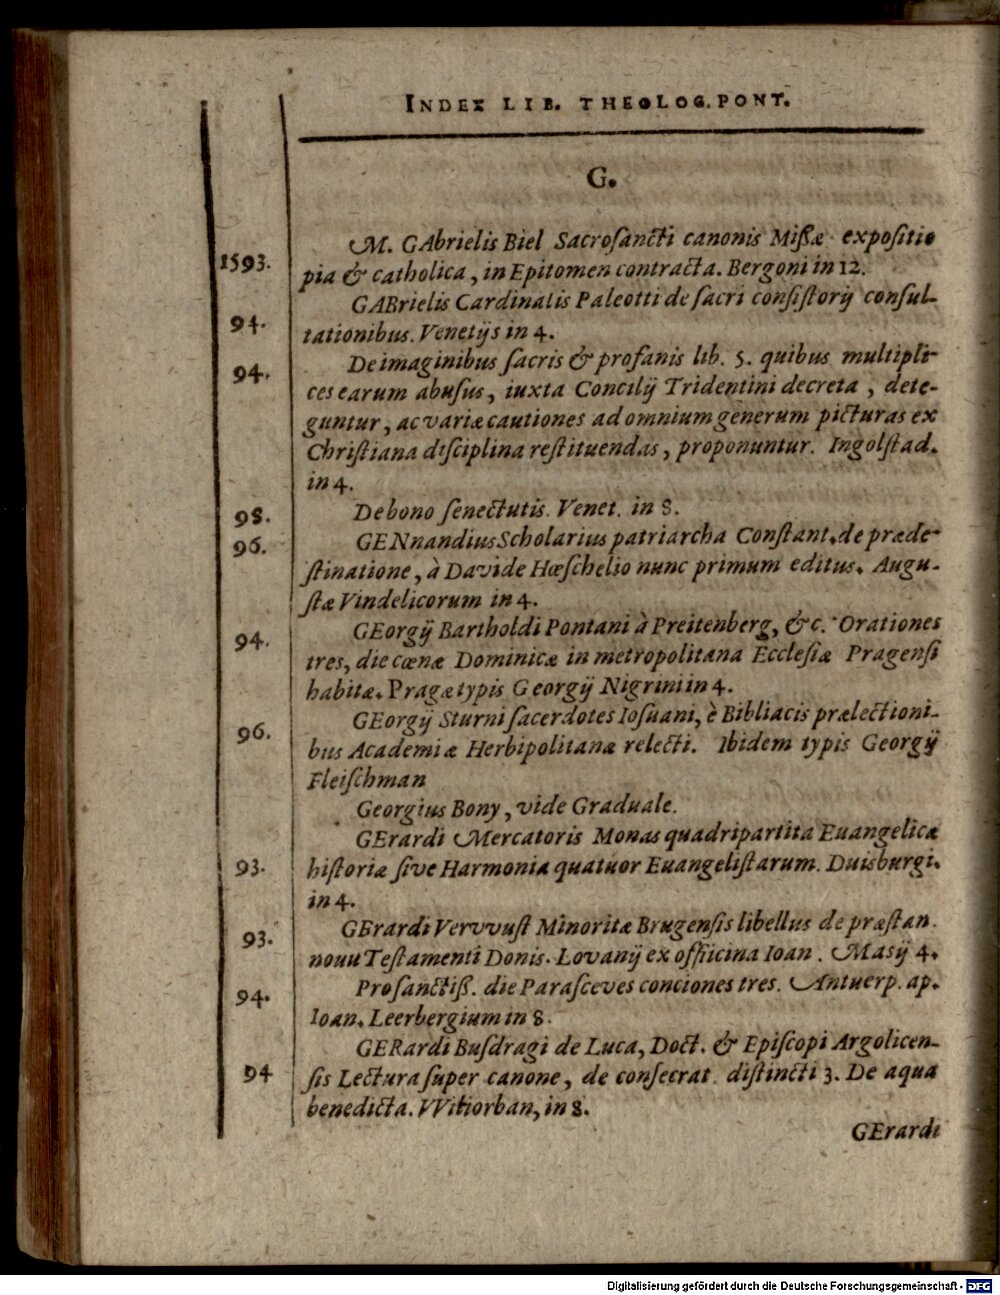 INDEX LIB. THEOLOG. PONT.
G.
M. GAbrielis Biel Sacrosancti canonis Missæ expositio
1593. pia & catholica, in Epitomen contracta. Bergoni in 12.
GABrielis Cardinalis Paleotti de sacri consistorij consul-
94. tationibus. Venetijs in 4.
94. De imaginibus sacris & profanis lib. 5. quibus multipli-
ces earum abusus, iuxta Concilij Tridentini decreta, dete-
guntur, ac variæ cautiones ad omnium generum picturas ex
Christiana disciplina restituendas, proponuntur. Ingolstad.
in 4.
98. De bono senectutis. Venet. in 8.
96. GENnandius Scholarius patriarcha Constant. de præde-
stinatione, à Davide Hœschelio nunc primum editus. Augu-
stæ Vindelicorum in 4.
94. GEorgij Bartholdi Pontani à Preitenberg, &c. Orationes
tres, die cœnæ Dominicæ in metropolitana Ecclesiæ Pragensi
habitæ. Pragæ typis Georgij Nigrini in 4.
96. GEorgij Sturni sacerdotes Iosuani, è Bibliacis prælectioni-
bus Academiæ Herbipolitanæ relecti. Ibidem typis Georgij
Fleischman
Georgius Bony, vide Graduale.
GErardi Mercatoris Monas quadripartita Euangelicæ
93. historiæ sive Harmonia quatuor Euangelistarum. Duisburgi.
in 4.
93. GErardi Vervvust Minoritæ Brugensis libellus de præstan.
nouu Testamenti Donis. Lovanij ex officina Ioan. Masij 4.
94. Pro sanctiss. die Parasceves conciones tres. Antuerp. ap.
Ioan. Leerbergium in 8.
GERardi Busdragi de Luca, Doct. & Episcopi Argolicen-
94 sis Lectura super canone, de consecrat. distincti 3. De aqua
benedicta. VVitiorban, in 8.
GErardi
Digitalisierung gefördert durch die Deutsche Forschungsgemeinschaft - DFG